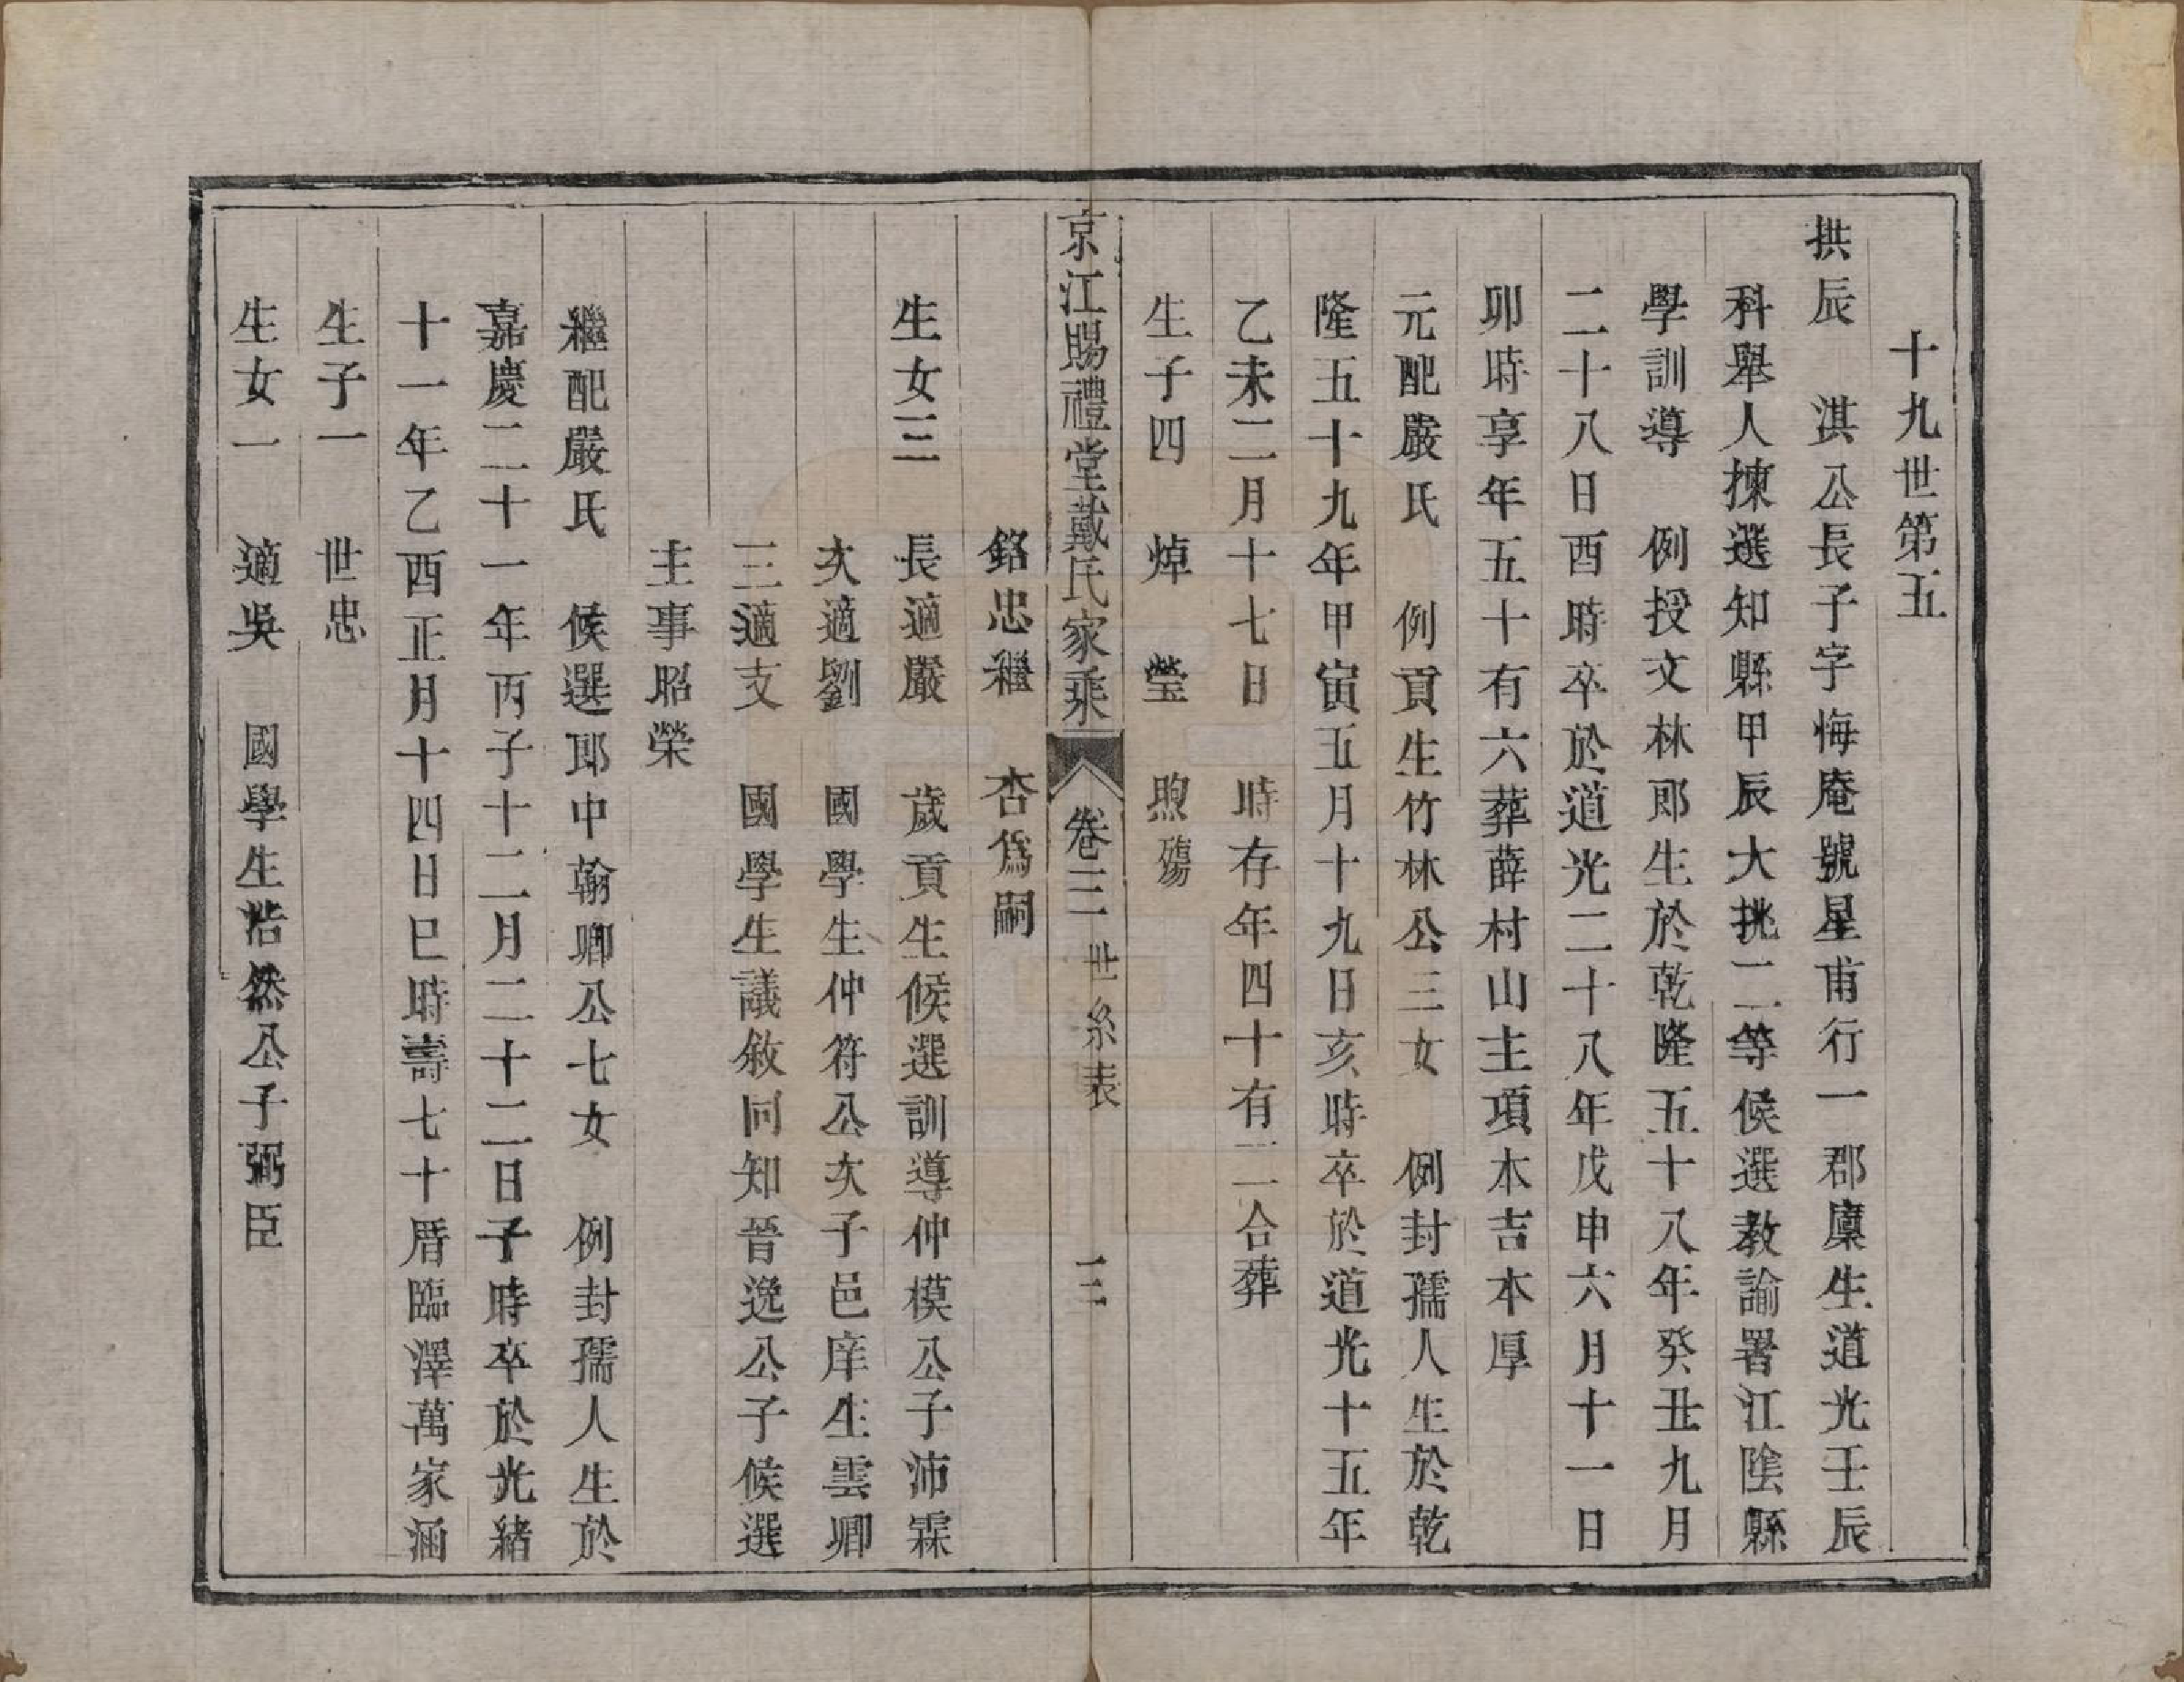 十九世第五
拱辰　淇公長子字悔庵號星甫行一郡廩生道光壬辰
科舉人揀選知縣甲辰大挑二等候選教諭署江陰縣
學訓導　例授文林郎生於乾隆五十八年癸丑九月
二十八日酉時卒於道光二十八年戊申六月十一日
卯時享年五十有六葬薛村山主項木吉本厚
元配嚴氏　例貢生竹林公三女　例封孺人生於乾
隆五十九年甲寅五月十九日亥時卒於道光十五年
乙未二月十七日　時存年四十有二合葬
生子四　焯　瑩　煦殤
京江賜禮堂戴氏家乘　卷三　世系表　三
銘忠繼　杏爲嗣
生女三　長適嚴　歲貢生候選訓導仲模公子沛霖
次適劉　國學生仲符公次子邑庠生雲卿
三適支　國學生議敘同知晉逸公子候選
主事昭榮
繼配嚴氏　候選郎中翰卿公七女　例封孺人生於
嘉慶二十一年丙子十二月二十二日子時卒於光緒
十一年乙酉正月十四日巳時壽七十厝臨澤萬家涵
生子一　世忠
生女一　適吳　國學生浩然公子弼臣